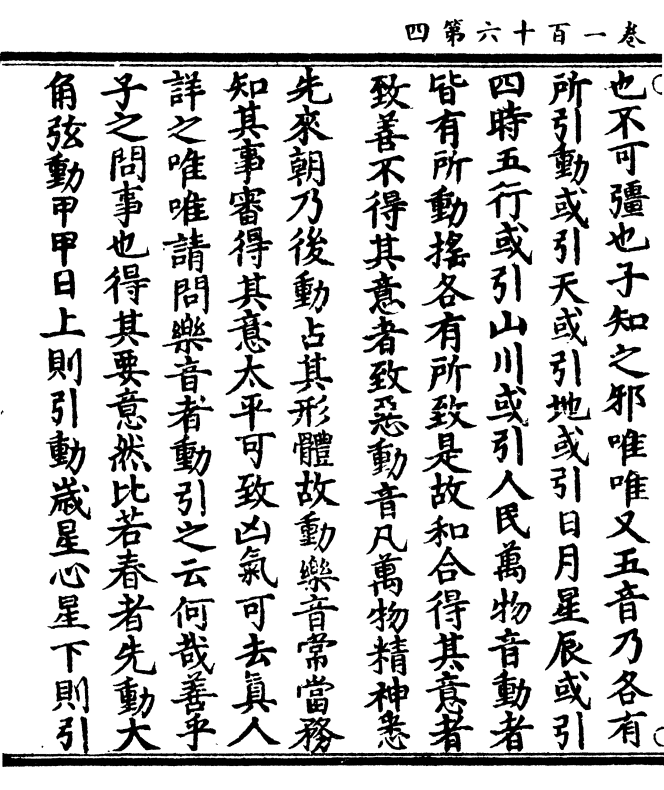 卷一百十六第四
也不可彊也子知之邪唯唯又五音乃各有
所引動或引天或引地或引日月星辰或引
四時五行或引山川或引人民萬物音動者
皆有所動搖各有所致是故和合得其意者
致善不得其意者致惡動音凡萬物精神悉
先來朝乃後動占其形體故動樂音常當務
知其事審得其意太平可致凶氣可去真人
詳之唯唯請問樂音者動引之云何哉善乎
子之問事也得其要意然比若春者先動大
角弦動甲甲日上則引動歲星心星下則引